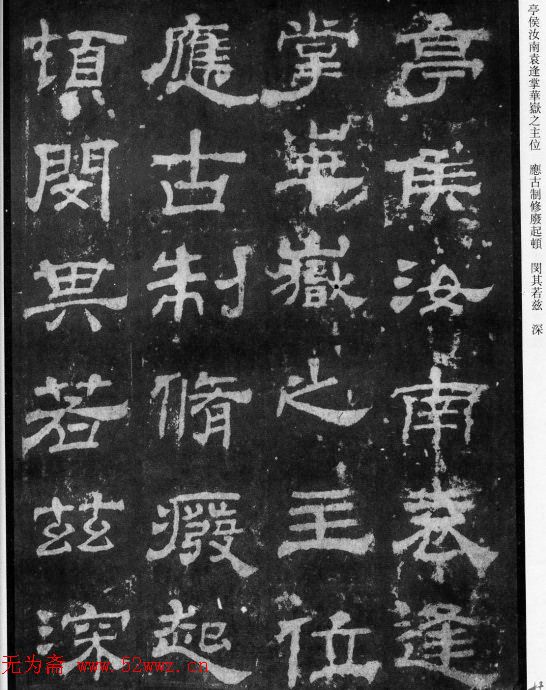 亭侯汝南袁逢掌華嶽之主位　應古制修廢起頓　閔其若兹　深
亭侯汝南袁逢
掌華嶽之主位
應古制脩癈起
頓閔其若兹深
无为斋 www.52wwz.cn